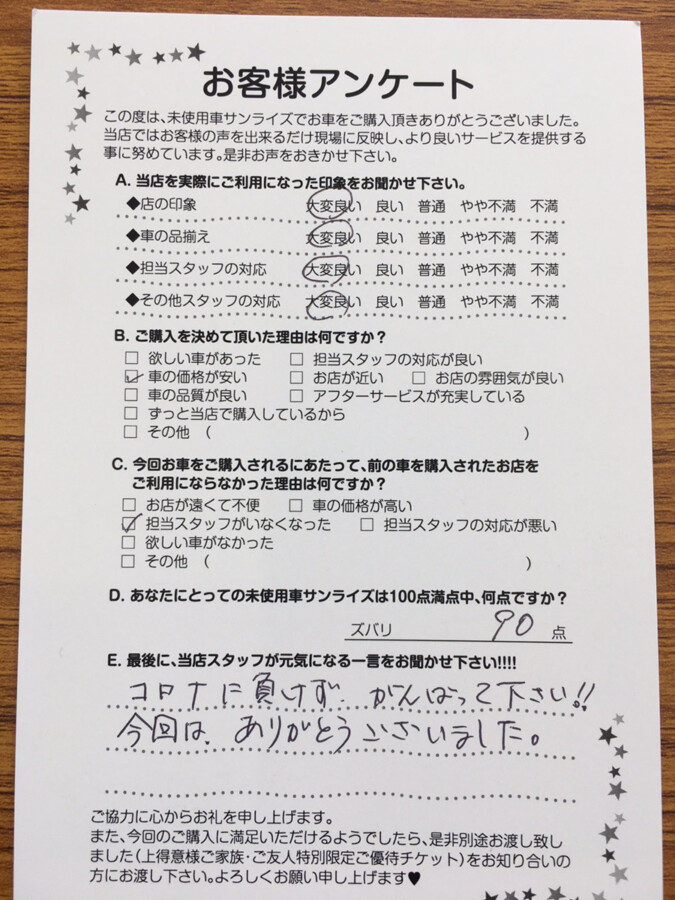 お客様アンケート
この度は、未使用車サンライズでお車をご購入頂きありがとうございました。
当店ではお客様の声を出来るだけ現場に反映し、より良いサービスを提供する
事に努めています。是非お声をおきかせ下さい。
A. 当店を実際にご利用になった印象をお聞かせ下さい。
◆店の印象 大変良い 良い 普通 やや不満 不満
◆車の品揃え 大変良い 良い 普通 やや不満 不満
◆担当スタッフの対応 大変良い 良い 普通 やや不満 不満
◆その他スタッフの対応 大変良い 良い 普通 やや不満 不満
B. ご購入を決めて頂いた理由は何ですか?
□ 欲しい車があった □ 担当スタッフの対応が良い
☑ 車の価格が安い □ お店が近い □ お店の雰囲気が良い
□ 車の品質が良い □ アフターサービスが充実している
□ ずっと当店で購入しているから
□ その他 ( )
C. 今回お車をご購入されるにあたって、前の車を購入されたお店を
ご利用にならなかった理由は何ですか?
□ お店が遠くて不便 □ 車の価格が高い
☑ 担当スタッフがいなくなった □ 担当スタッフの対応が悪い
□ 欲しい車がなかった
□ その他 ( )
D. あなたにとっての未使用車サンライズは100点満点中、何点ですか?
ズバリ 90 点
E. 最後に、当店スタッフが元気になる一言をお聞かせ下さい!!!!
コロナに負けず、がんばって下さい!!
今回は、ありがとうございました。
ご協力に心からお礼を申し上げます。
また、今回のご購入に満足いただけるようでしたら、是非別途お渡し致し
ました(上得意様ご家族・ご友人特別限定ご優待チケット)をお知り合いの
方にお渡し下さい。よろしくお願い申し上げます♥